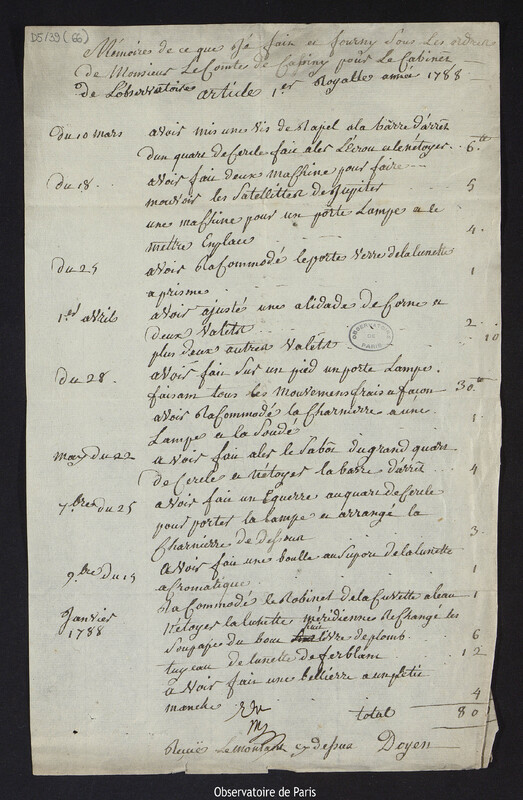 D5/39 (66)
Mémoires de ce que J'é fait et fourny Sous Les ordres
de Monsieur Le Comtes de Casiny pour Le Cabinet
de Lobservatoire article 1er Royalle année 1788
Du 10 mars avoir mis une vis de Rapel a la barre d'arrêt
dun quare de Cercle fait aler L'écrou et le netoyer 6 tt
Du 18 avoir fait deux Machine pour faire
mouvoir les Satellittes de Jupiter 5
une machine pour un porte Lampe et le
mettre En place 4
du 25 avoir Racommodé le porte verre de la lunette
a prisme 1
1er avril avoir ajusté une alidade de Corne et
deux valets 2
plus deux autres valets 10
OBSERVATOIRE DE PARIS
du 28 avoir fait Sur un pied un porte Lampe
faisant tous les Mouvemens frais et façon 30 tt
avoir Racommodé La Charniere a une
Lampe et la Soudé 1
may du 22 avoir fait aler le Sabot du grand quart
de Cercle et Nétoyer la barre d'arrêt 4
7bre du 25 avoir fait un Equerre au quare de Cercle
pour porter la lampe et arrangé la
Charniere de dessous 3
9bre du 15 avoir fait une boulle au Suport de la lunette
acromatique 1
Racommodé le Robinet de la Cuvette a leau 1
Janvier 1788 Nétoyer la lunette méridienne Rechangé les
Soupape du bout livre de plomb 6
tuyeau de lunette de fer blanc 12
avoir fait une bellierre a un petit
manche 4
total 80
Reçue Le montant cy dessus Doyen
Observatoire de Paris